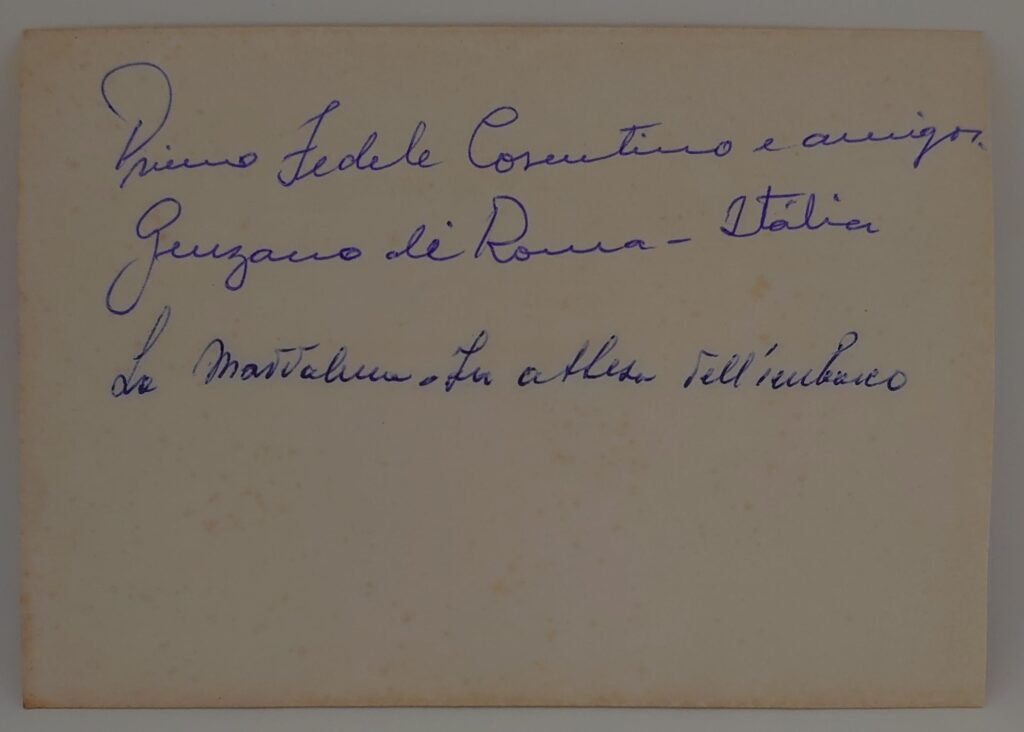 Primo Fedele Cosentino e amigos.
Genzano di Roma - Itália
La Maddalena - In attesa dell'imbarco